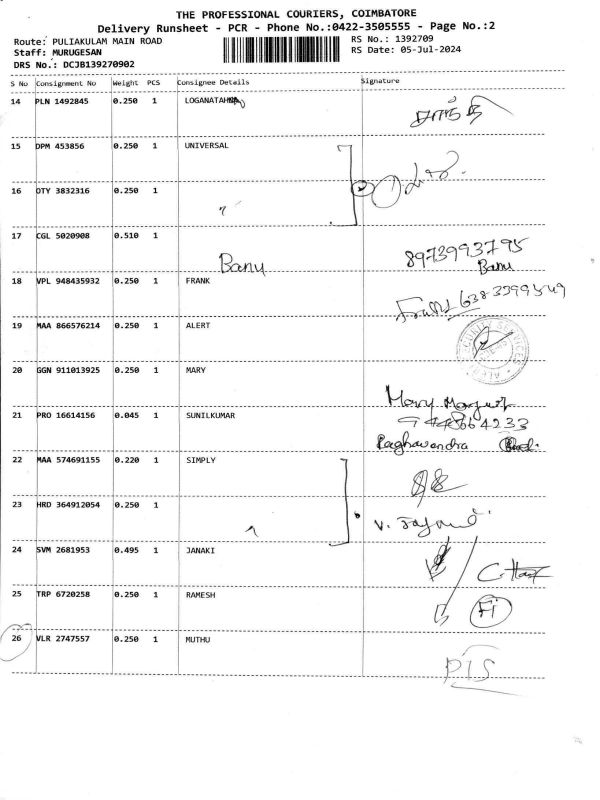 THE PROFESSIONAL COURIERS, COIMBATORE
Delivery Runsheet - PCR - Phone No.:0422-3505555 - Page No.:2
Route: PULIAKULAM MAIN ROAD RS No.: 1392709
Staff: MURUGESAN RS Date: 05-Jul-2024
DRS No.: DCJB139270902
S No Consignment No Weight PCS Consignee Details Signature
14 PLN 1492845 0.250 1
15 DPM 453856 0.250 1 UNIVERSAL
16 OTY 3832316 0.250 1
17 CGL 5020908 0.510 1
Banu 8973993795
Banu
18 VPL 948435932 0.250 1 FRANK
19 MAA 866576214 0.250 1 ALERT
20 GGN 911013925 0.250 1 MARY
Mary
21 PRO 16614156 0.045 1 SUNILKUMAR
Raghavendra
22 MAA 574691155 0.220 1 SIMPLY
23 HRD 364912054 0.250 1
24 SVM 2681953 0.495 1 JANAKI
25 TRP 6720258 0.250 1 RAMESH
26 VLR 2747557 0.250 1 MUTHU